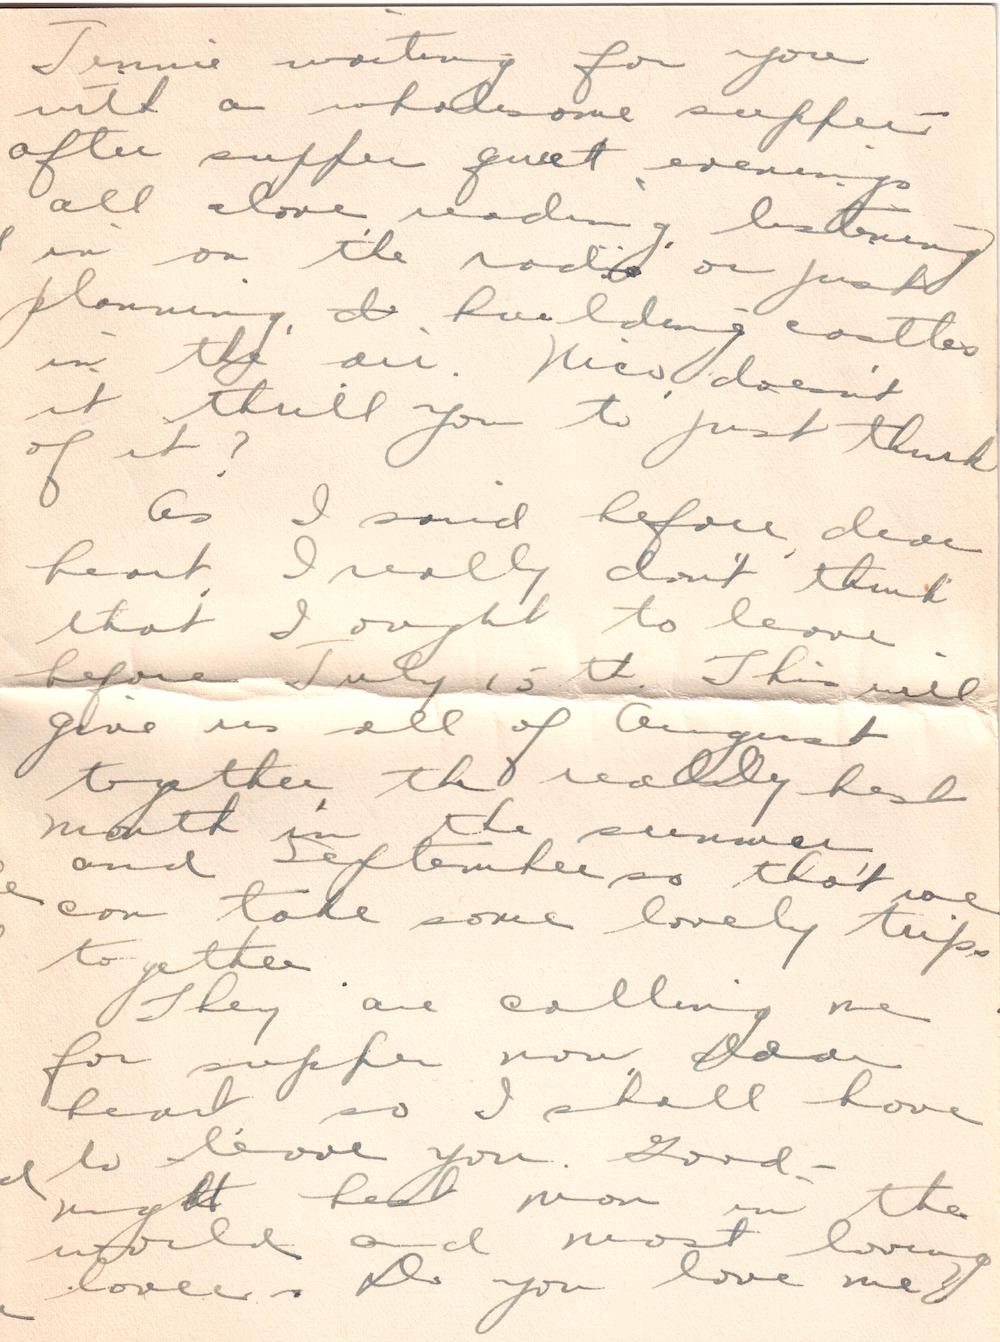 Jennie waiting for you
with a wholesome supper
after supper quiet evenings
all alone reading, listening
in on the radio or just
planning, & building castles
in the air. Nico, doesn't
it thrill you to just think
of it?
As I said before, dear
heart, I really don't think
that I ought to leave
before July 15 th. This will
give us all of August
together, the really best
month in the summer
and September so that we
can take some lovely trips
together
They are calling me
for supper now, Dear
heart so I shall have
to leave you. Good-
night best man in the
world and most loving
lover. Do you love me?